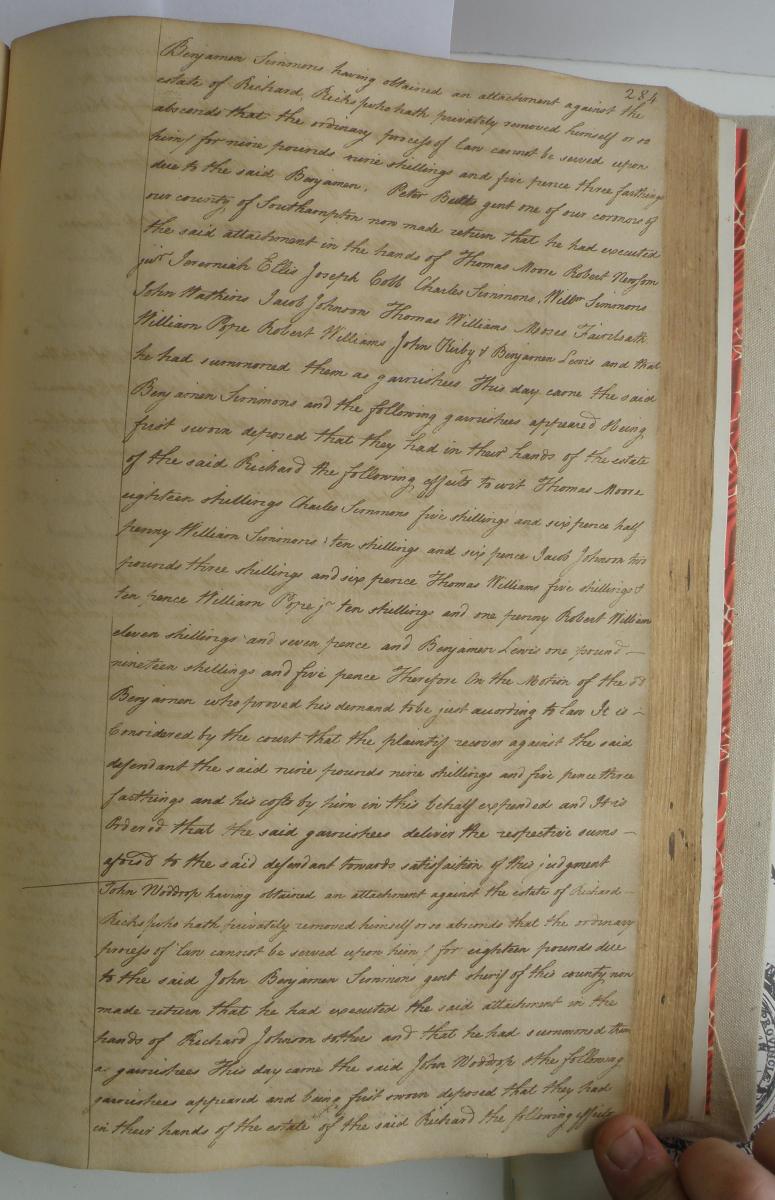 284
Benjamen Simmons having obtained an attachment against the
estate of Richard Ricks (who hath privately removed himself or so
absconds that the ordinary process of law cannot be served upon
him) for nine pounds nine shillings and five pence three farthings
due to the said Benjamen. Peter Butts gent one of our coroners of
our county of Southampton now made return that he had executed
the said attachment in the hands of Thomas Moore Robert Newsom
junr Jeremiah Ellis Joseph Cobb Charles Simmons, Willm Simmons
John Watkins Jacob Johnson Thomas Williams Moses
William Pope Robert Williams John Kirby & Benjamen Lewis and that
he had summoned them as garnishees This day came the said
Benjamen Simmons and the following garnishees appeared & being
first sworn deposed that they had in their hands of the estate
of the said Richard the following effects to wit Thomas Moore
eighteen shillings Charles Simmons five shillings and six pence half
penny William Simmons ten shillings and six pence Jacob Johnson two
pounds three shillings and six pence Thomas Williams five shillings &
ten pence William Pope jr ten shillings and one penny Robert William
eleven shillings and seven pence and Benjamen Lewis one pound —
nineteen shillings and five pence Therefore On the Motion of the sd
Benjamen who proved his demand to be just according to law It is —
Considered by the court that the plaintif recover against the said
defendant the said nine pounds nine shillings and five pence three
farthings and his costs by him in this behalf expended and It is
Ordered that the said garnishees deliver the respective sums —
aforsd to the said defendant towards satisfaction of this judgment
John Woodrop having obtained an attachment against the estate of Richard —
Ricks (who hath privately removed himself or so absconds that the ordinary
process of law cannot be served upon him) for eighteen pounds due
to the said John Benjamen Simmons gent sherif of this county now
made return that he had executed the said attachment in the
hands of Richard Johnson & others and that he had summoned them
as garnishees This day came the said John Woodrop & the following
garnishees appeared and being first sworn deposed that they had
in their hands of the estate of the said Richard the following effects